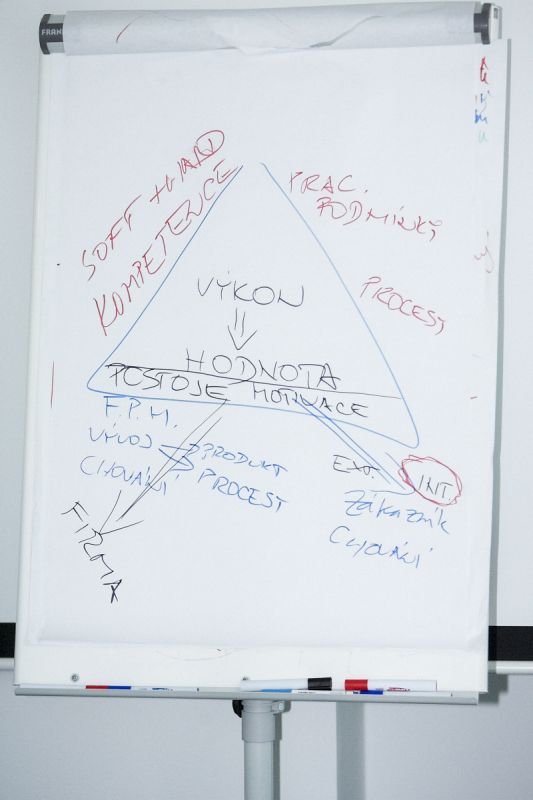 FRAN
SOFT + HARD
KOMPETENCE
PRAC.
PODMÍNKY
PROCESY
VÝKON
HODNOTA
POSTOJE MOTIVACE
F.P.M.
VÝVOJ
CHOVÁNÍ
PRODUKT
PROCESY
FIRMA
EXT.
INT.
Zákazník
CHOVÁNÍ